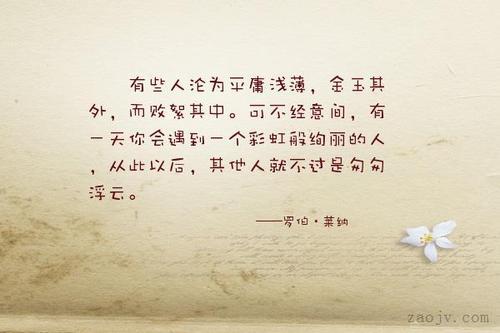 有些人沦为平庸浅薄，金玉其
外，而败絮其中。可不经意间，有
一天你会遇到一个彩虹般绚丽的人
，从此以后，其他人就不过是匆匆
浮云。
——罗伯·莱纳
zaojv.com